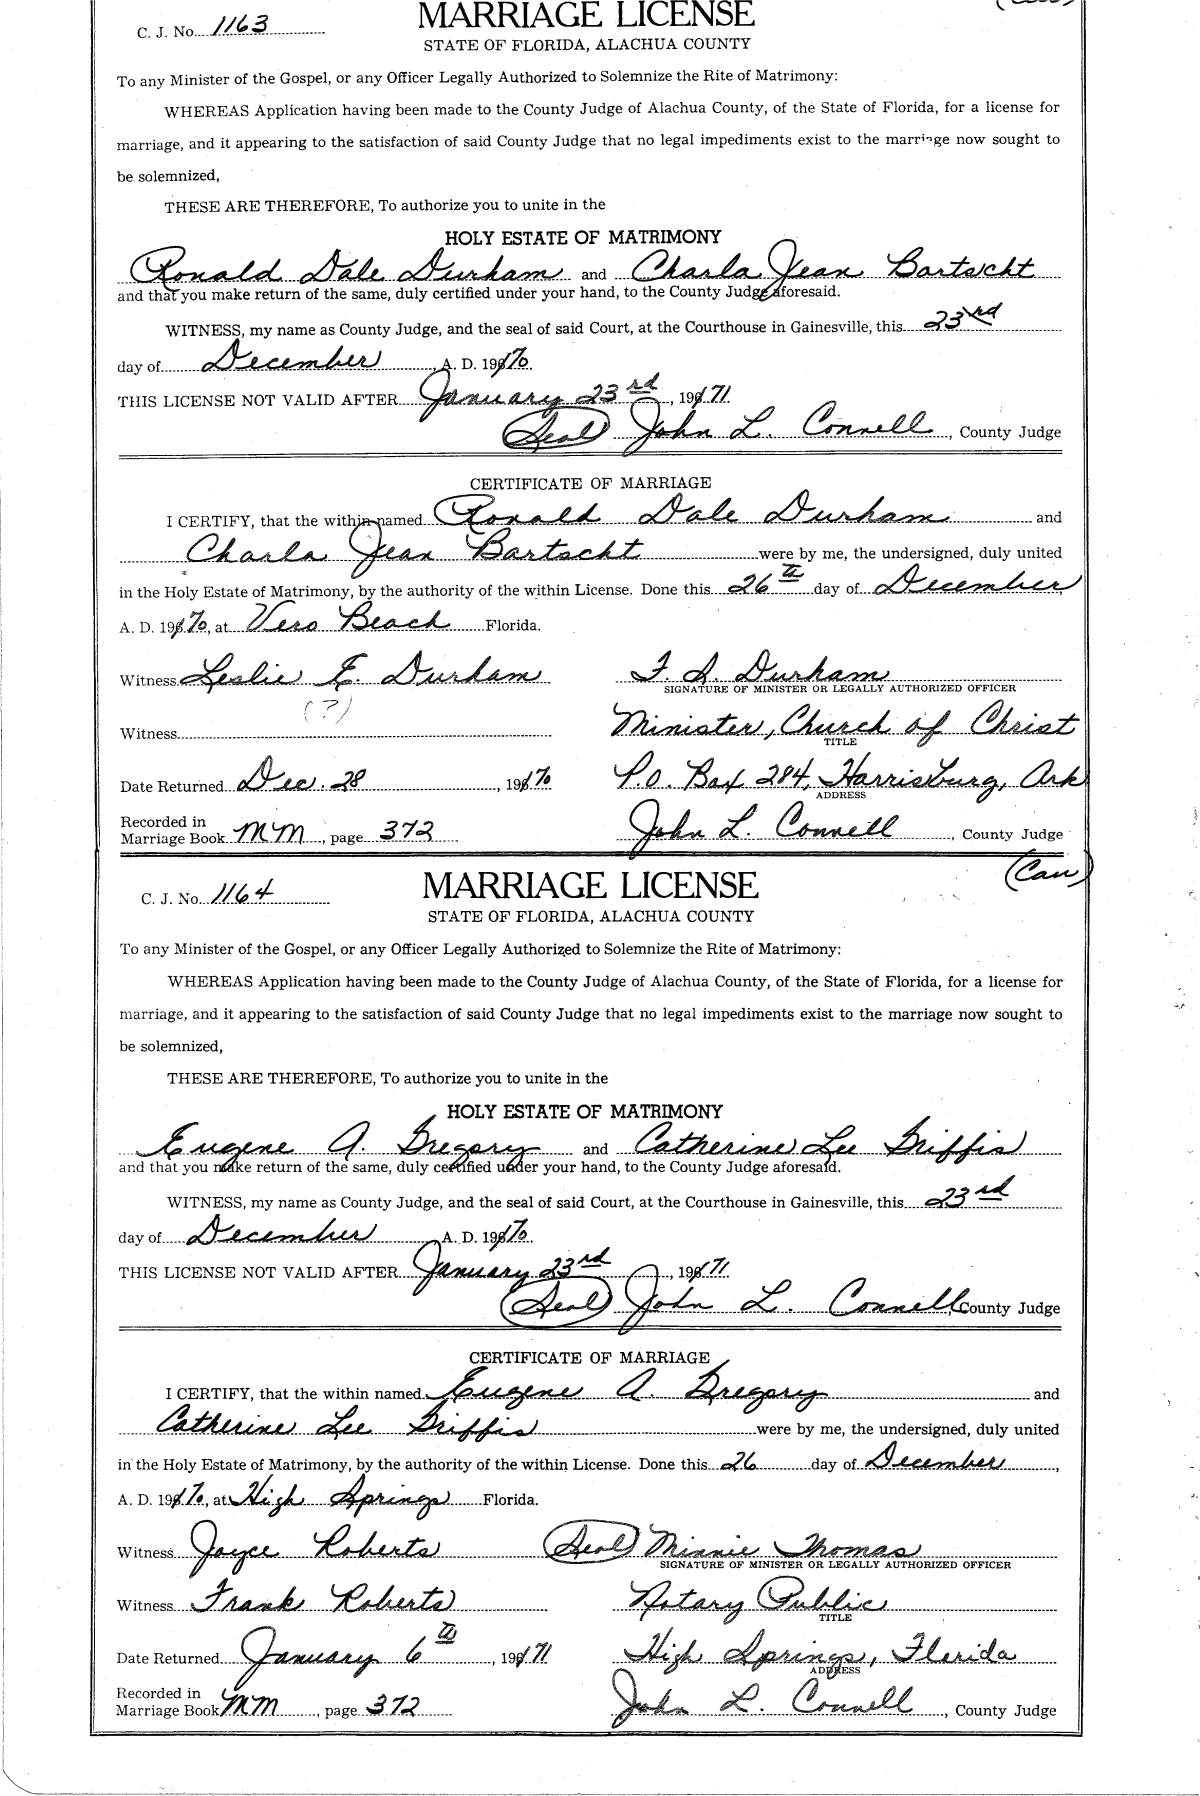 C. J. No. 1163
MARRIAGE LICENSE
STATE OF FLORIDA, ALACHUA COUNTY
To any Minister of the Gospel, or any Officer Legally Authorized to Solemnize the Rite of Matrimony:
WHEREAS Application having been made to the County Judge of Alachua County, of the State of Florida, for a license for
marriage, and it appearing to the satisfaction of said County Judge that no legal impediments exist to the marriage now sought to
be solemnized,
THESE ARE THEREFORE, To authorize you to unite in the
HOLY ESTATE OF MATRIMONY
Ronald Dale Durham and Charla Jean Bartscht
and that you make return of the same, duly certified under your hand, to the County Judge aforesaid.
WITNESS, my name as County Judge, and the seal of said Court, at the Courthouse in Gainesville, this 23rd
day of December A. D. 1970.
THIS LICENSE NOT VALID AFTER January 23rd, 1971.
(Seal) John L. Connell, County Judge
CERTIFICATE OF MARRIAGE
I CERTIFY, that the within named Ronald Dale Durham and
Charla Jean Bartscht were by me, the undersigned, duly united
in the Holy Estate of Matrimony, by the authority of the within License. Done this 26th day of December
A. D. 1970, at Vero Beach Florida.
Witness Leslie E. Durham F. S. Durham
SIGNATURE OF MINISTER OR LEGALLY AUTHORIZED OFFICER
(?)
Witness Minister, Church of Christ
TITLE
Date Returned Dec. 28, 1970 P.O. Box 284, Harrisburg, Ark
ADDRESS
Recorded in
Marriage Book MM, page 372 John L. Connell, County Judge
(Cau)
C. J. No. 1164
MARRIAGE LICENSE
STATE OF FLORIDA, ALACHUA COUNTY
To any Minister of the Gospel, or any Officer Legally Authorized to Solemnize the Rite of Matrimony:
WHEREAS Application having been made to the County Judge of Alachua County, of the State of Florida, for a license for
marriage, and it appearing to the satisfaction of said County Judge that no legal impediments exist to the marriage now sought to
be solemnized,
THESE ARE THEREFORE, To authorize you to unite in the
HOLY ESTATE OF MATRIMONY
Eugene A. Gregory and Catherine Lee Griffis
and that you make return of the same, duly certified under your hand, to the County Judge aforesaid.
WITNESS, my name as County Judge, and the seal of said Court, at the Courthouse in Gainesville, this 23rd
day of December A. D. 1970.
THIS LICENSE NOT VALID AFTER January 23rd, 1971.
(Seal) John L. Connell, County Judge
CERTIFICATE OF MARRIAGE
I CERTIFY, that the within named Eugene A. Gregory and
Catherine Lee Griffis were by me, the undersigned, duly united
in the Holy Estate of Matrimony, by the authority of the within License. Done this 26 day of December,
A. D. 1970, at High Springs Florida.
Witness Joyce Roberts (Seal) Minnie Thomas
SIGNATURE OF MINISTER OR LEGALLY AUTHORIZED OFFICER
Witness Frank Roberts Notary Public
TITLE
Date Returned January 6th, 1971 High Springs, Florida
ADDRESS
Recorded in
Marriage Book MM, page 372 John L. Connell, County Judge